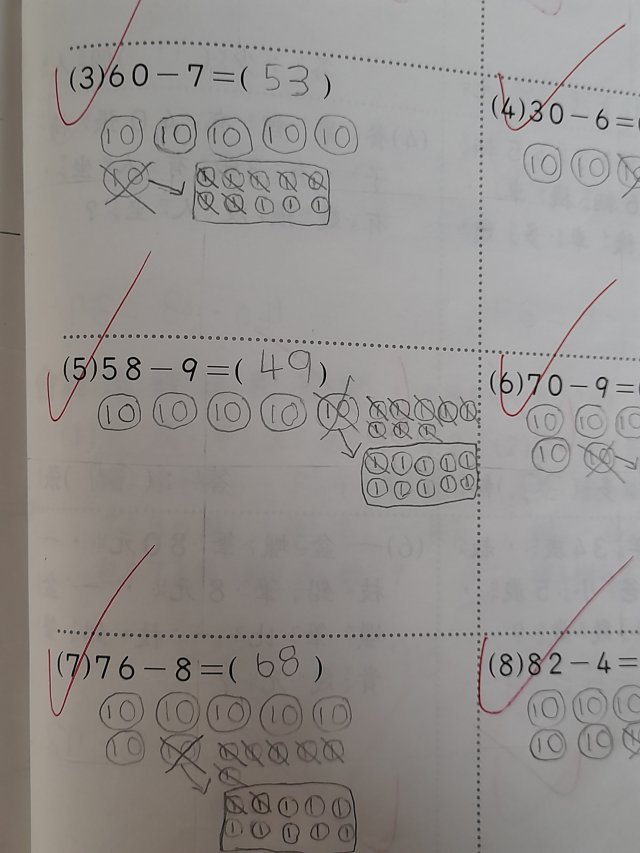 (3)60－7＝( 53 )
10 10 10 10 10
10
1 1 1 1 1
1 1 1 1 1
(4)30－6＝(
10 10 10
(5)58－9＝( 49 )
10 10 10 10 10
1 1 1 1 1
1 1 1
1 1 1 1 1
1 1 1 1 1
(6)70－9＝(
10 10 10
10 10
(7)76－8＝( 68 )
10 10 10 10 10
10 10
1 1 1 1 1
1
1 1 1 1 1
1 1 1 1 1
(8)82－4＝
10 10 10
10 10